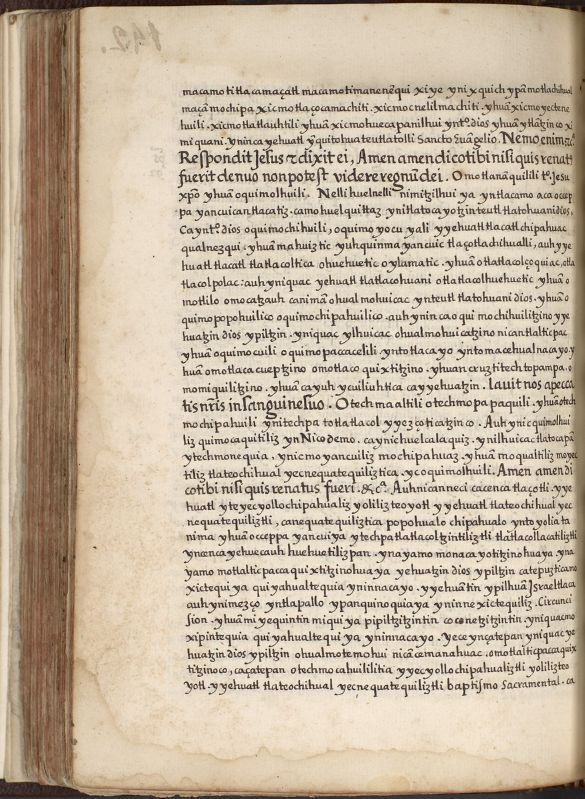 macamo titlacamaçatl macamotimanenēqui xiye yn ixquich ypā motlachihual
maçā mochipa xicmotlaçocamachiti. xicmocnelilmachiti. yhuā xicmoyectene
huili. xicmotlatlauhtili yhuā xicmohuecapanilhui ynto. dios yhuā ytlātzinco xi
miquani. yn inca yehuatl yquitohua teutlatolli Sancto Evāgelio. Nemo enim &c.
Respondit Jesus & dixit ei, Amen amen dico tibi nisi quis renatus
fuerit denuo non potest videre regnū dei. Omotlanāquilili to. Jesu
xpō yhuā oquimolhuili. Nelli huel nelli nimitzilhui ya yntlacamo aca occep
pa yancuican tlacatiz. camo huel quittaz ynitlatocayotzin teutl tlatohuani dios,
Ca ynto. dios oquimochihuili, oquimoyocuyali yyehuatl tlacatl chipahuac
qualnezqui. yhuā mahuiztic yuhquinma yancuic tlaçotlachihualli, auh yye
huatl tlacatl tlatlacoltica ohuehuetic oylamatic. yhuā otlatlacolçoquiac, otla
tlacolpolac: auh yniquac yehuatl tlatlacohuani otlatlacolhuehuetic yhuā o
motlilo omocatzauh canimā ohualmohuicac ynteutl tlatohuani dios. yhuā o
quimopopohuilico oquimochipahuilico. auh ynin ca oquimochihuilitzino yye
huatzin dios ypiltzin. yniquac ylhuicac ohualmohuicatzino nican tlalticpac
yhuā oquimocuili oquimopaccacelili yntotlacayo yntomacehualnacayo. y
huā omotlacacueptzino omotlacoquixtitzino. yhuan cruztitech topampa. o
momiquilitzino. yhuā cayuh ycuiliuhtica ca yyehuatzin. lauit nos a pecca
tis nr̄is in sanguine suo. Otechmaaltili otechmopapaquili. yhuā otech
mochipahuili ynitechpa totlatlacol yyezçoticatzinco. Auh ynic quimolhui
liz quimocaquitiliz yn Nicodemo. caynic huel calaquiz. ynilhuicac tlatocapā
ytechmonequia. ynicmoyancuiliz mochipahuaz. yhuā moqualtiliz moyec
tiliz tlateochihual yecnequatequiliztica. yc oquimolhuili. Amen amen di
co tibi nisi quis renatus fueri. &ca. Auh nican neci ca cenca tlaçotli. yye
huatl yteyecyollochipahualiz yoliliz teoyotl yyehuatl tlateochihual yec
nequatequiliztli, canequatequiliztica popohualo chipahualo yntoyolia ta
nima yhuā occeppa yancuiya ytechpa tlatlacoltzintliztli tlatlacollacatiliztli
ynœnca yehuecauh huehuetilizpan. ynayamo monacayotitzinohuaya. yna
yamo motlalticpaccaquixtitzinohuaya yehuatzin dios ypiltzin catepuzticamo
xictequiya quiyahualtequia yninnacayo. yyehuātin ypilhuā Israel tlaca
auh ynimezço yntlapallo ypanquinoquiaya yninne xictequiliz. Circunci
sion. yhuā miyequintin miquiya pipiltzitzintin coconetzitzintin. yniquac mo
xipintequia quiyahualtequiya yninnacayo. Yece ynçatepan yniquac ye
huatzin dios ypiltzin ohualmotemohui nicā cemanahuac. omotlalticpaccaquix
titzinoco, caçatepan otechmocahuililitia yyecyollochipahualiztli yoliliz teo
yotl. yyehuatl tlateochihual yecnequatequiliztli baptismo Sacramental. ca